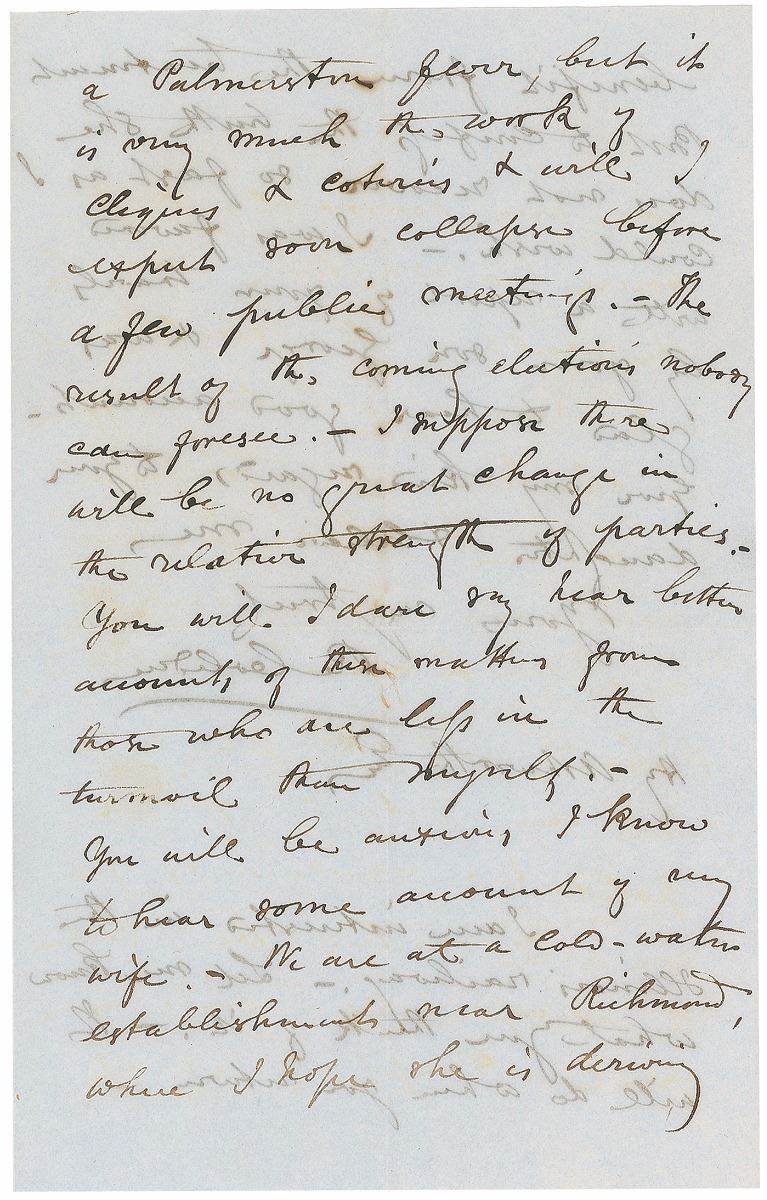 a Palmerston fever, but it
is very much the work of
cliques & coteries & will I
expect soon collapse before
a few public meetings. – The
result of the coming elections nobody
can foresee. – I suppose there
will be no great change in
the relative strength of parties. –
You will I dare say hear better
accounts of these matters from
those who are less in the
turmoil than myself. –
You will be anxious I know
to hear some account of my
wife. – We are at a cold-water
establishment near Richmond,
where I hope she is deriving